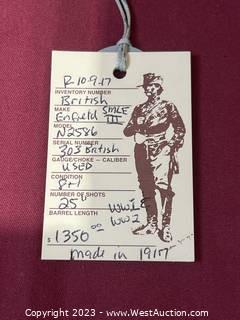 R-10-9-17
INVENTORY NUMBER
British
MAKE
Enfield SMLE III
MODEL
N2586
SERIAL NUMBER
303 British
GAUGE/CHOKE – CALIBER
USED
CONDITION
8+1
NUMBER OF SHOTS
25"
BARREL LENGTH
WWI &
WW2
$1350.00
made in 1917
Copyright 2023 - www.WestAuction.com